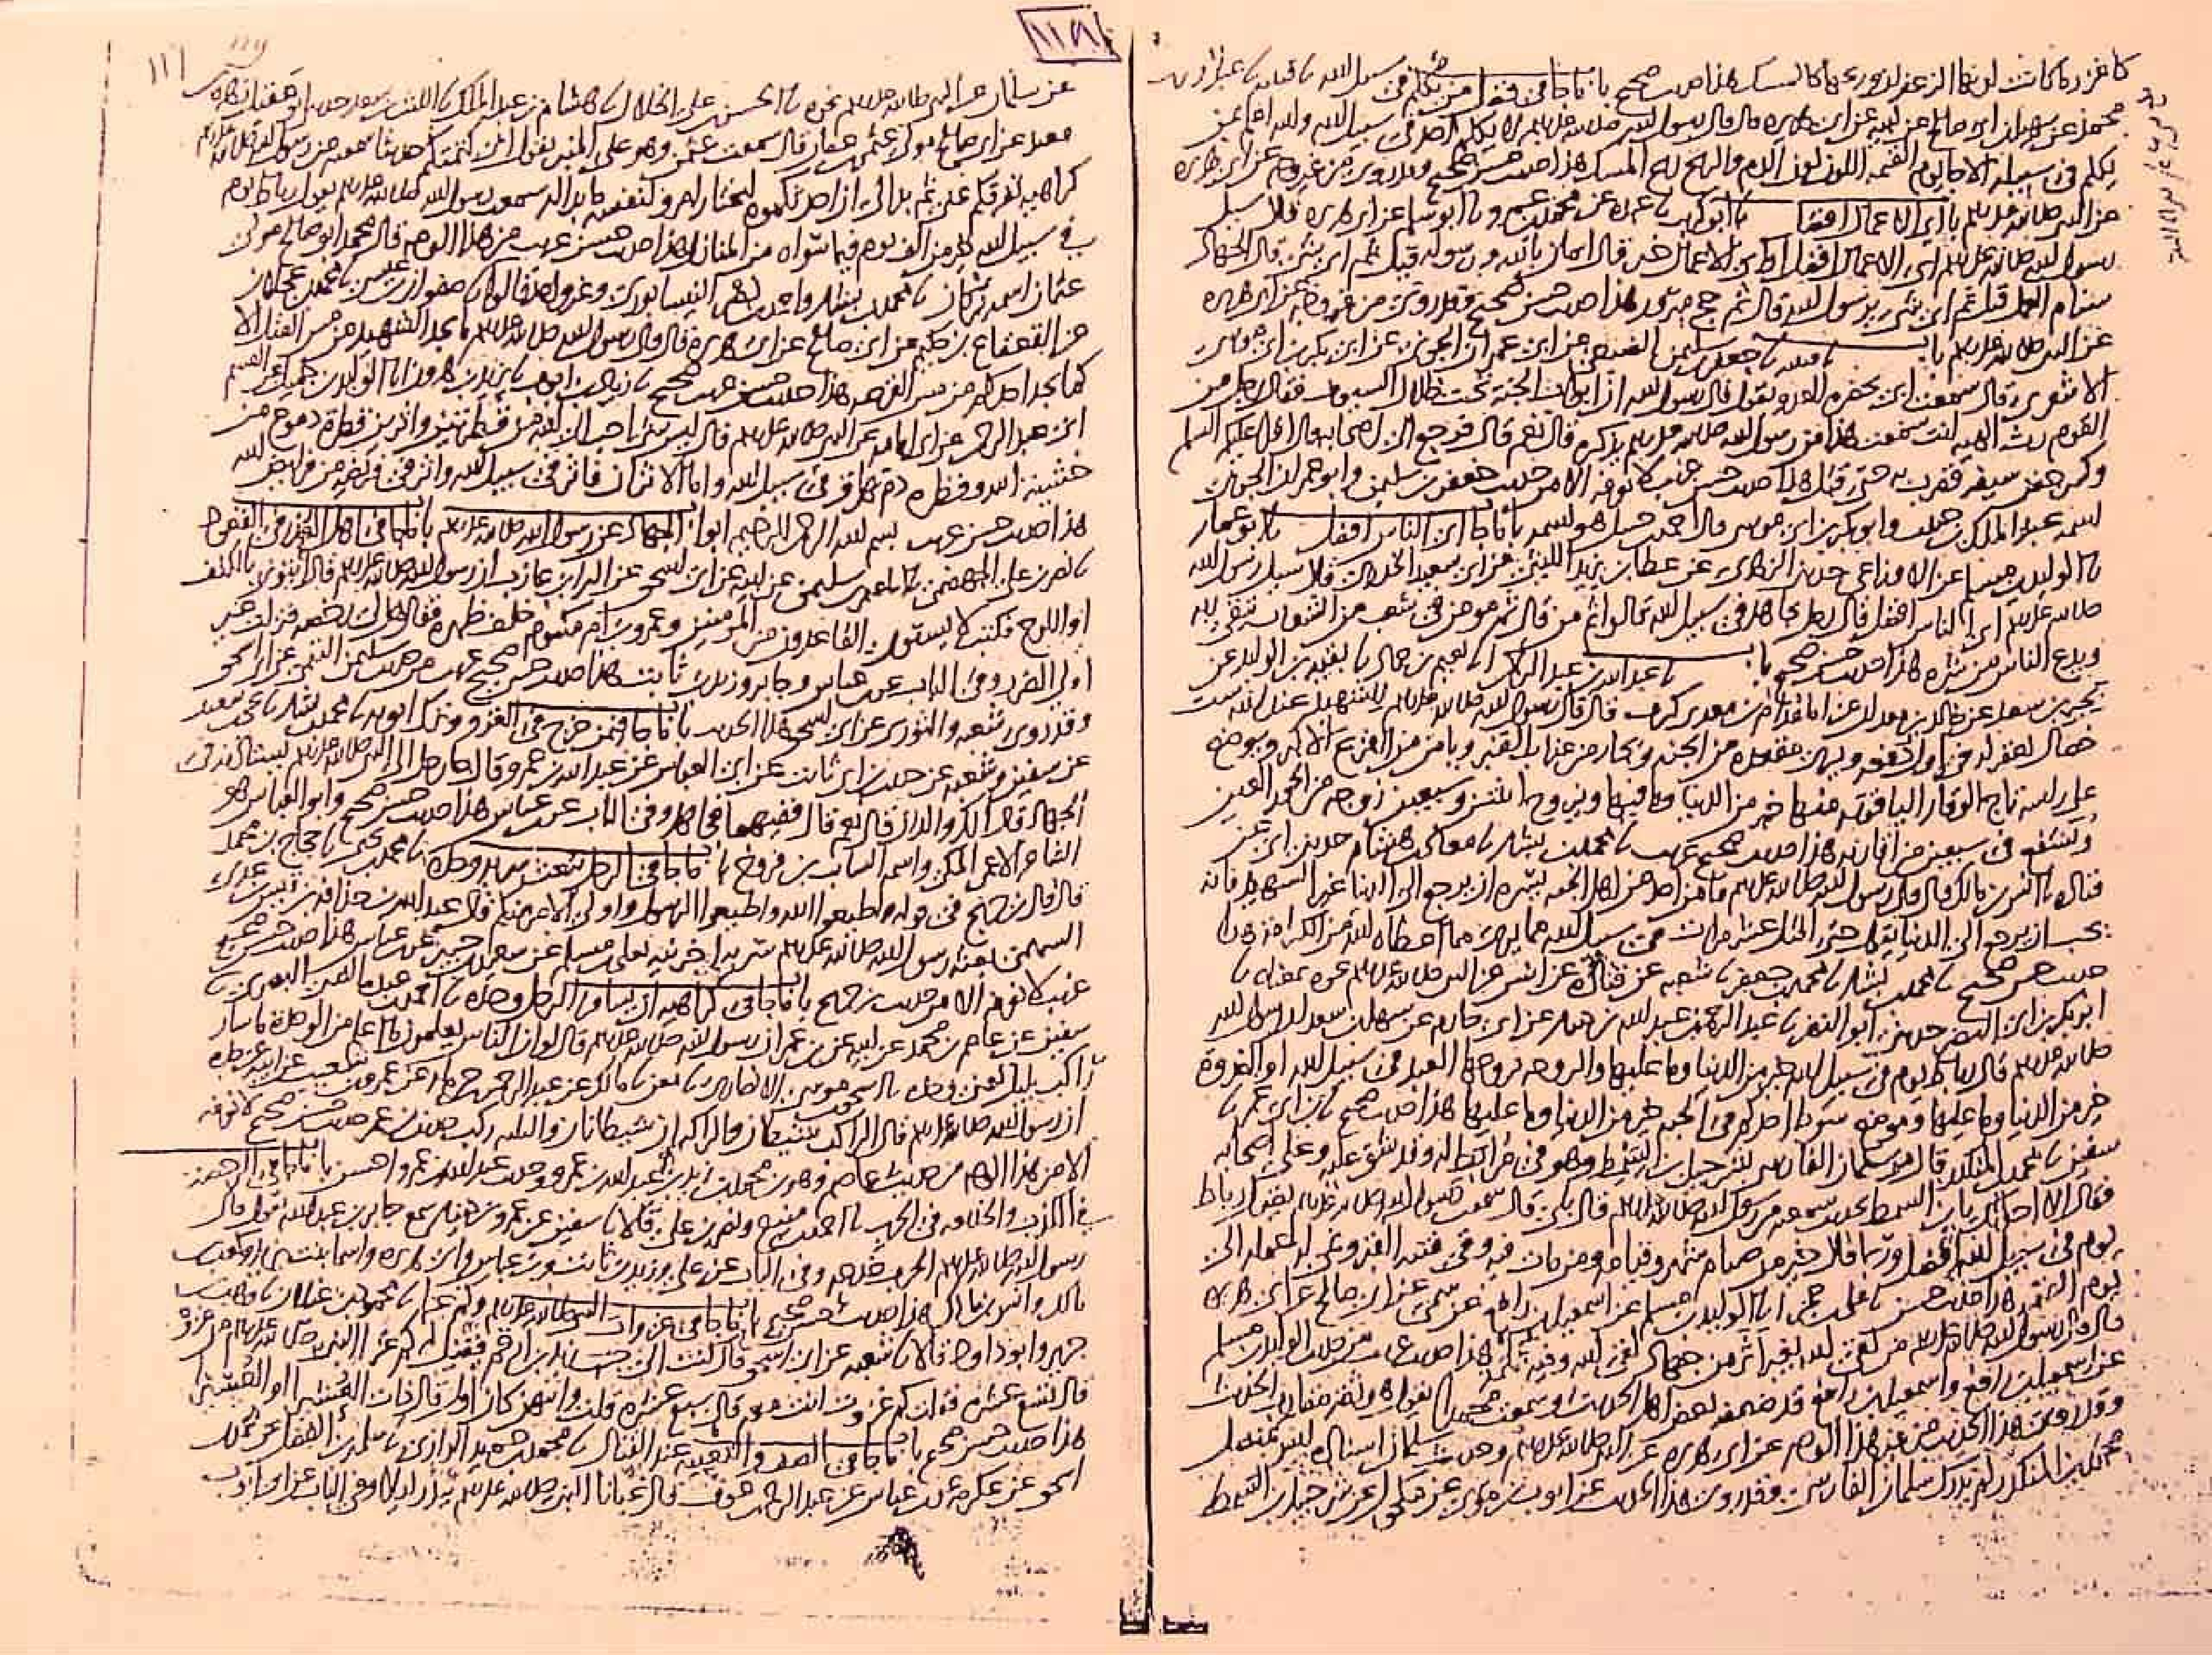 كاغزر ما كانت لونها الزعفران وريحها كالمسك هذا حديث صحيح باب ما جا في فضل من يكلم في سبيل الله نا قتيبة نا عبد العزيز بن
محمد عن سهيل بن ابي صالح عن ابيه عن ابي هريرة قال قال رسول الله صلى الله عليه وسلم لا يكلم احد في سبيل الله والله اعلم بمن
يكلم في سبيله الا جا يوم القيمة اللون لون الدم والريح ريح المسك هذا حديث حسن صحيح وقد روي من غير وجه عن ابي هريرة
عن النبي صلى الله عليه وسلم باب اي الاعمال افضل نا ابو كريب نا عبدة عن محمد بن عمرو نا ابو سلمة عن ابي هريرة قال سيل
رسول الله صلى الله عليه وسلم اي الاعمال افضل او اي الاعمال خير قال ايمان بالله ورسوله قيل ثم اي شي قال الجهاد
سنام العمل قيل ثم اي شي يا رسول الله قال ثم حج مبرور هذا حديث حسن صحيح وقد روي من غير وجه عن ابي هريرة
عن النبي صلى الله عليه وسلم باب نا قتيبة نا جعفر بن سليمن الضبعي عن ابي عمران الجوني عن ابي بكر بن ابي موسى
الاشعري قال سمعت ابي بحضرة العدو يقول قال رسول الله ان ابواب الجنة تحت ظلال السيوف فقال رجل من
القوم رث الهيه انت سمعت هذا من رسول الله صلى الله عليه وسلم يذكره قال نعم قال فرجع الى اصحابه قال اقرا عليكم السلم
وكسر جفن سيفه فضرب به حتى قتل هذا حديث حسن غريب لا نعرفه الا من حديث جعفر بن سليمن وابو عمران الجوني
اسمه عبد الملك بن حبيب وابو بكر بن ابي موسى قال احمد بن حنبل هو اسمه باب ما جا اي الناس افضل نا ابو عمار
نا الوليد بن مسلم عن الاوزاعي حدثني الزهري عن عطا بن يزيد الليثي عن ابي سعيد الخدري قال سيل رسول الله
صلى الله عليه وسلم اي الناس افضل قال رجل يجاهد في سبيل الله قالوا ثم من قال ثم مومن في شعب من الشعاب يتقي ربه
ويدع الناس من شره هذا حديث حسن صحيح باب نا عبد الله بن عبد الرحمن انا نعيم بن حماد نا بقية بن الوليد عن
بحير بن سعد عن خالد بن معدان عن المقدام بن معدي كرب قال قال رسول الله صلى الله عليه وسلم للشهيد عند الله ست
خصال يغفر له في اول دفعة ويرى مقعده من الجنة ويجار من عذاب القبر ويامن من الفزع الاكبر ويوضع
على راسه تاج الوقار الياقوتة منها خير من الدنيا وما فيها ويزوج اثنتين وسبعين زوجة من الحور العين
ويشفع في سبعين من اقاربه هذا حديث صحيح غريب نا محمد بن بشار نا معاذ بن هشام حدثني ابي عن
قتادة نا انس بن مالك قال قال رسول الله صلى الله عليه وسلم ما من احد من اهل الجنة يسره ان يرجع الى الدنيا غير الشهيد فانه
يحب ان يرجع الى الدنيا يقول حتى اقتل عشر مرات في سبيل الله مما يرى مما اعطاه الله من الكرامة هذا
حديث حسن صحيح نا محمد بن بشار نا محمد بن جعفر نا شعبة عن قتادة عن انس عن النبي صلى الله عليه وسلم نحوه بمعناه نا
ابو بكر بن ابي النضر حدثني ابو النضر نا عبد الرحمن بن عبد الله بن دينار عن ابي حازم عن سهل بن سعد ان رسول الله
صلى الله عليه وسلم قال رباط يوم في سبيل الله خير من الدنيا وما عليها والروحة يروحها العبد في سبيل الله او الغدوة
خير من الدنيا وما عليها وموضع سوط احدكم في الجنة خير من الدنيا وما عليها هذا حديث صحيح نا ابن ابي عمر نا
سفين نا محمد بن المنكدر قال مر سلمان الفارسي بشرحبيل بن السمط وهو في مرابط له وقد شق عليه وعلى اصحابه
فقال الا احدثك يا بن السمط بحديث سمعته من رسول الله صلى الله عليه وسلم قال بلى قال سمعت رسول الله صلى الله عليه وسلم يقول رباط
يوم في سبيل الله افضل وربما قال خير من صيام شهر وقيامه ومن مات فيه وقي فتنة القبر ونمي له عمله الى
يوم القيمة هذا حديث حسن نا علي بن حجر انا الوليد بن مسلم عن اسمعيل بن رافع عن سمي عن ابي صالح عن ابي هريرة
قال قال رسول الله صلى الله عليه وسلم من لقي الله بغير اثر من جهاد لقي الله وفيه ثلمة هذا حديث غريب من حديث الوليد بن مسلم
عن اسمعيل بن رافع واسمعيل بن رافع قد ضعفه بعض اهل الحديث وسمعت محمدا يقول هو ثقة مقارب الحديث
وقد روي هذا الحديث من غير هذا الوجه عن ابي هريرة عن النبي صلى الله عليه وسلم وحديث سلمان اسناده ليس بمتصل
محمد بن المنكدر لم يدرك سلمان الفارسي وقد روي هذا الحديث عن ايوب بن موسى عن مكحول عن شرحبيل بن السمط
١١٨
١١١
عن سلمان عن النبي صلى الله عليه وسلم نحوه نا الحسن بن علي الخلال نا هشام بن عبد الملك نا الليث بن سعد حدثني ابو عقيل زهرة بن
معبد عن ابي صالح مولى عثمن بن عفان قال سمعت عثمن وهو على المنبر يقول اني كتمتكم حديثا سمعته من رسول الله صلى الله عليه وسلم
كراهية تفرقكم عني ثم بدا لي ان احدثكموه ليختار امرو لنفسه ما بدا له سمعت رسول الله صلى الله عليه وسلم يقول رباط يوم
في سبيل الله خير من الف يوم فيما سواه من المنازل هذا حديث حسن غريب من هذا الوجه قال محمد ابو صالح مولى
عثمان اسمه بركان نا محمد بن بشار واحمد بن نصر النيسابوري وغير واحد قالوا نا صفوان بن عيسى نا محمد بن عجلان
عن القعقاع بن حكيم عن ابي صالح عن ابي هريرة قال قال رسول الله صلى الله عليه وسلم ما يجد الشهيد من مس القتل الا
كما يجد احدكم من مس القرصة هذا حديث حسن غريب صحيح نا زياد بن ايوب نا يزيد بن هرون انا الوليد بن جميل عن القسم
ابي عبد الرحمن عن ابي امامة عن النبي صلى الله عليه وسلم قال ليس شي احب الى الله من قطرتين واثرين قطرة دموع من
خشية الله وقطرة دم تهراق في سبيل الله واما الاثران فاثر في سبيل الله واثر في فريضة من فرايض الله
هذا حديث حسن غريب بسم الله الرحمن الرحيم ابواب الجهاد عن رسول الله صلى الله عليه وسلم باب ما جا في اهل العذر في القعود
نا نصر بن علي الجهضمي نا المعتمر بن سليمن عن ابيه عن ابي اسحق عن البرا بن عازب ان رسول الله صلى الله عليه وسلم قال ايتوني بالكتف
او اللوح فكتب لا يستوي القاعدون من المومنين وعمرو بن ام مكتوم خلف ظهره فقال هل لي رخصة فنزلت غير
اولي الضرر وفي الباب عن ابن عباس وجابر وزيد بن ثابت هذا حديث حسن صحيح غريب من حديث سليمن التيمي عن ابي اسحق
وقد روى شعبة والثوري عن ابي اسحق هذا الحديث باب ما جا فيمن خرج في الغزو وترك ابويه نا محمد بن بشار نا يحيى بن سعيد
عن سفين وشعبة عن حبيب بن ابي ثابت عن ابي العباس عن عبد الله بن عمرو قال جا رجل الى النبي صلى الله عليه وسلم يستاذنه في
الجهاد قال الك والدان قال نعم قال ففيهما فجاهد وفي الباب عن ابن عباس هذا حديث حسن صحيح وابو العباس هو
الشاعر الاعمى المكي واسمه السايب بن فروخ باب ما جا في الرجل يبعث سرية وحده نا محمد بن يحيى نا حجاج بن محمد
قال قال بن جريج في قوله اطيعوا الله واطيعوا الرسول واولي الامر منكم قال عبد الله بن حذافة بن قيس بن عدي
السهمي بعثه رسول الله صلى الله عليه وسلم سرية اخبرنيه يعلى بن مسلم عن سعيد بن جبير عن بن عباس هذا حديث حسن صحيح
غريب لا نعرفه الا من حديث بن جريج باب ما جا في كراهية ان يسافر الرجل وحده نا احمد بن عبدة الضبي البصري نا
سفين عن عاصم بن محمد عن ابيه عن بن عمر ان رسول الله صلى الله عليه وسلم قال لو ان الناس يعلمون ما اعلم من الوحدة ما سار
راكب بليل يعني وحده نا اسحق بن موسى الانصاري نا معن نا مالك عن عبد الرحمن بن حرملة عن عمرو بن شعيب عن ابيه عن جده
ان رسول الله صلى الله عليه وسلم قال الراكب شيطان والراكبان شيطانان والثلثة ركب حديث بن عمر حديث حسن صحيح لا نعرفه
الا من هذا الوجه من حديث عاصم وهو بن محمد بن زيد بن عبد الله بن عمر وحديث عبد الله بن عمرو احسن باب ما جا في الرخصة
في الكذب والخديعة في الحرب نا احمد بن منيع ونصر بن علي قالا نا سفين عن عمرو بن دينار سمع جابر بن عبد الله يقول قال
رسول الله صلى الله عليه وسلم الحرب خدعة وفي الباب عن علي وزيد بن ثابت وبن عباس وابي هريرة واسما بنت يزيد وكعب بن
مالك وانس بن مالك هذا حديث حسن صحيح باب ما جا في غزوات النبي صلى الله عليه وسلم وكم غزا نا محمود بن غيلان نا وهب بن
جرير وابو داود قالا نا شعبة عن ابي اسحق قال كنت الى جنب زيد بن ارقم فقيل له كم غزا النبي صلى الله عليه وسلم من غزوة
قال تسع عشرة فقلت كم غزوت انت معه قال سبع عشرة قلت وايتهن كان اول قال ذات العشيرا او العسيرا
هذا حديث حسن صحيح باب ما جا في الصف والتعبية عند القتال نا محمد بن حميد الرازي نا سلمة بن الفضل عن محمد بن
اسحق عن عكرمة عن بن عباس عن عبد الرحمن بن عوف قال عبانا النبي صلى الله عليه وسلم ببدر ليلا وفي الباب عن ابي ايوب